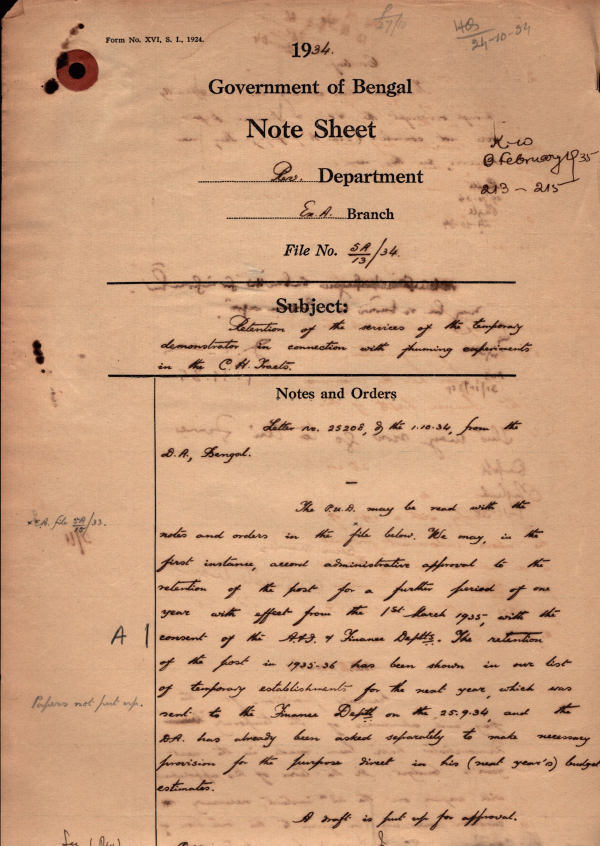 Form No. XVI, S. I., 1924.
27/10
24-10-34
1934.
Government of Bengal
Note Sheet
K-W
February 1935
213 – 215
Rev. Department
Ex. A. Branch
File No. 5A/13/34.
Subject:
Retention of the services of the temporary
demonstrator in connection with jhuming experiments
in the C. H. Tracts.
Notes and Orders
Letter no. 25208, d/ the 1.10.34, from the
D.A., Bengal.
The P.U.D. may be read with the
notes and orders in the file below. We may, in the
first instance, accord administrative approval to the
retention of the post for a further period of one
year with effect from the 1st March 1935, with the
consent of the A.&I. & Finance Deptts. The retention
of the post in 1935-36 has been shown in our list
of temporary establishments for the next year, which was
sent to the Finance Deptt on the 25.9.34, and the
DA. has already been asked separately to make necessary
provision for the purpose direct in his (next year's) budget
estimates.
A draft is put up for approval.
A. file 5A/15/33.
A
Papers not put up.